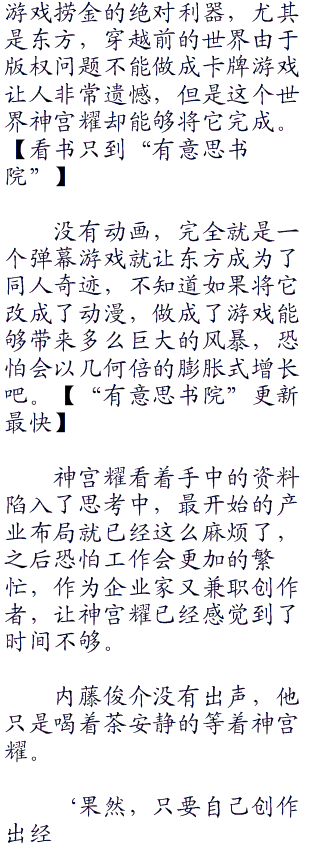 游戏捞金的绝对利器，尤其
是东方，穿越前的世界由于
版权问题不能做成卡牌游戏
让人非常遗憾，但是这个世
界神宫耀却能够将它完成。
【看书只到“有意思书
院”】
没有动画，完全就是一
个弹幕游戏就让东方成为了
同人奇迹，不知道如果将它
改成了动漫，做成了游戏能
够带来多么巨大的风暴，恐
怕会以几何倍的膨胀式增长
吧。【“有意思书院”更新
最快】
神宫耀看着手中的资料
陷入了思考中，最开始的产
业布局就已经这么麻烦了，
之后恐怕工作会更加的繁
忙，作为企业家又兼职创作
者，让神宫耀已经感觉到了
时间不够。
内藤俊介没有出声，他
只是喝着茶安静的等着神宫
耀。
‘果然，只要自己创作
出经